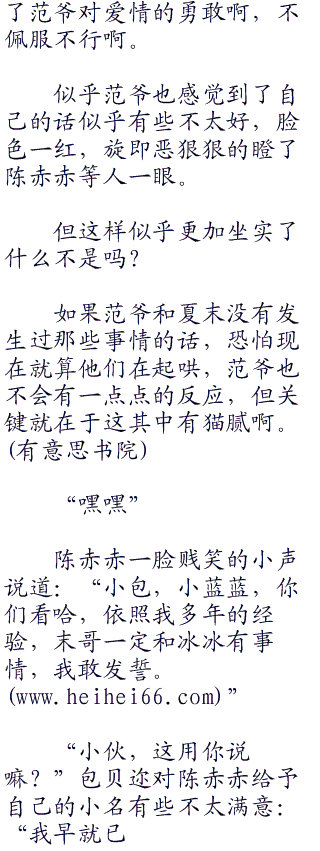 了范爷对爱情的勇敢啊，不
佩服不行啊。
似乎范爷也感觉到了自
己的话似乎有些不太好，脸
色一红，旋即恶狠狠的瞪了
陈赤赤等人一眼。
但这样似乎更加坐实了
什么不是吗？
如果范爷和夏末没有发
生过那些事情的话，恐怕现
在就算他们在起哄，范爷也
不会有一点点的反应，但关
键就在于这其中有猫腻啊。
(有意思书院)
“嘿嘿”
陈赤赤一脸贱笑的小声
说道：“小包，小蓝蓝，你
们看哈，依照我多年的经
验，末哥一定和冰冰有事
情，我敢发誓。
(www.heihei66.com)”
“小伙，这用你说
嘛？”包贝迩对陈赤赤给予
自己的小名有些不太满意：
“我早就已